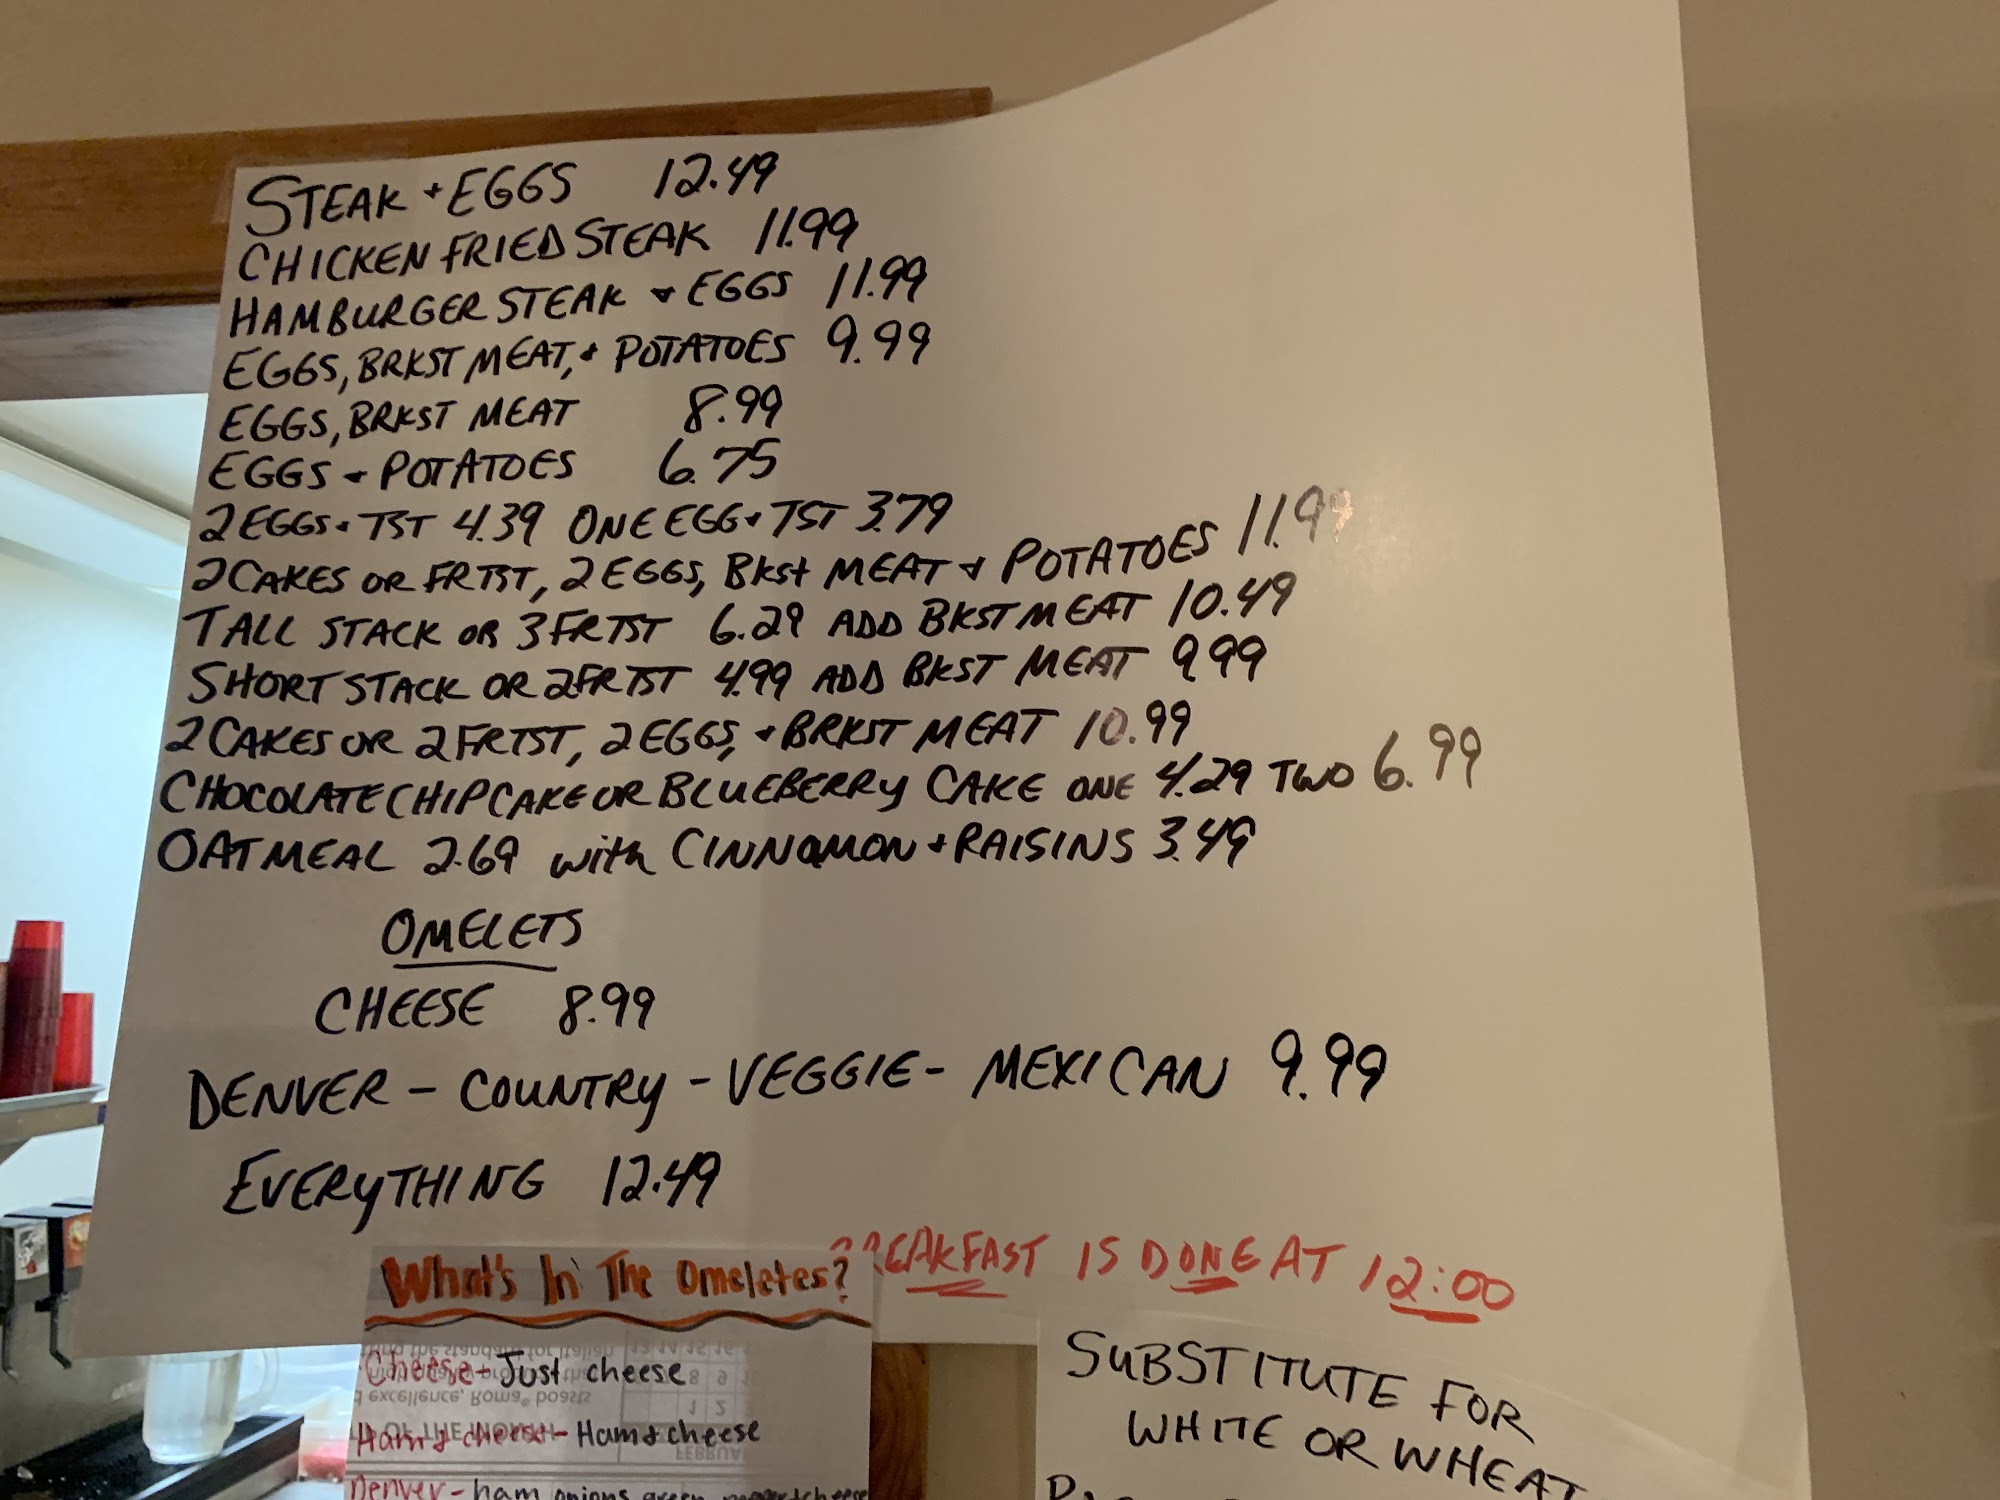 STEAK + EGGS 12.49
CHICKEN FRIED STEAK 11.99
HAMBURGER STEAK + EGGS 11.99
EGGS, BRKST MEAT, + POTATOES 9.99
EGGS, BRKST MEAT 8.99
EGGS + POTATOES 6.75
2 EGGS + TST 4.39 ONE EGG + TST 3.79
2 CAKES OR FRTST, 2 EGGS, BKST MEAT + POTATOES 11.99
TALL STACK OR 3 FRTST 6.29 ADD BKST MEAT 10.49
SHORT STACK OR 2 FRTST 4.99 ADD BKST MEAT 9.99
2 CAKES OR 2 FRTST, 2 EGGS, + BRKST MEAT 10.99
CHOCOLATE CHIP CAKE OR BLUEBERRY CAKE ONE 4.29 TWO 6.99
OATMEAL 2.69 with CINNAMON + RAISINS 3.49
OMELETS
CHEESE 8.99
DENVER - COUNTRY - VEGGIE - MEXICAN 9.99
EVERYTHING 12.49
BREAKFAST IS DONE AT 12:00
What's In The Omeletes?
Cheese - Just cheese
Ham & cheese - Ham & cheese
Denver - ham onions green pepper + cheese
SUBSTITUTE FOR
WHITE OR WHEAT